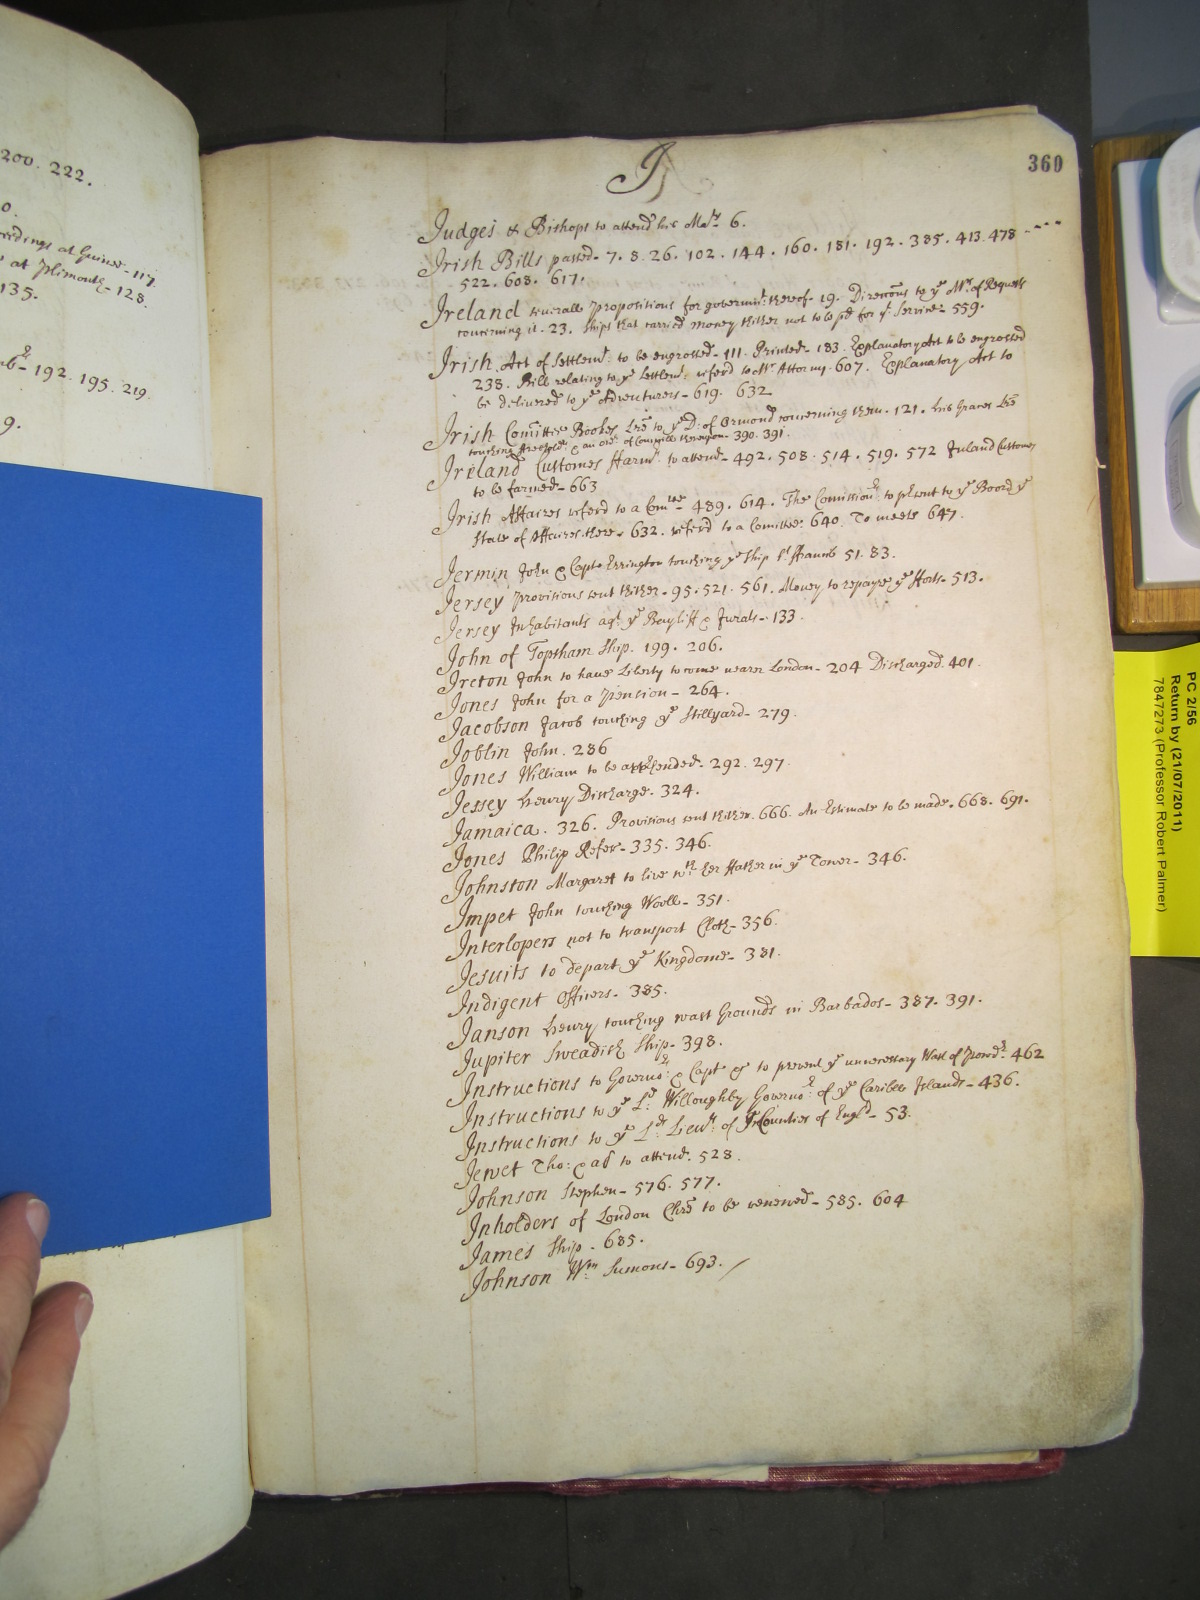 200. 222.
0.
eedings at Guinea - 117.
at Plimouth - 128.
135.
192. 195. 219
9.
J
360
Judges & Bishops to attend his Ma:ty 6.
Irish Bills passed - 7. 8. 26. 102. 144. 160. 181. 192. 385. 413. 478 - - -
522. 608. 617.
Ireland severall Propositions for governm:t thereof - 19. Direccons to ye Mr. of Requests
concerning it. 23. Ships that carried money thither not to be pd for ye Service - 559.
Irish Act of Settlem:t to be engrossed - 111. Printed - 183. Explanatory Act to be engrossed
238. Bill relating to ye Settlem:t referd to Mr Attorny. 607. Explanatory Act to
be delivered to ye Adventurers - 619. 632
Irish Comittee Bookes Lre to ye D: of Ormond concerning them. 121. his Graces Lre
touching &c an ordr of Councill thereupon - 390. 391.
Ireland Customes Farm:rs to attend - 492. 508. 514. 519. 572 Inland Customes
to be farmed - 663
Irish Affaires referd to a Com:tee - 489. 614. The Comissionrs to psent to ye Board ye
State of Affaires there - 632. referd to a Comittee 640. To meete 647.
Jermin John & Capt Errington touching ye Ship St Francis 51. 83.
Jersey Provisions sent thither - 95. 521. 561. Money to repayre ye Forts - 513.
Jersey Inhabitants agt ye Bayliff & Jurats - 133.
John of Topsham Ship. 199. 206.
Ireton John to have Liberty to come nearer London - 204 Discharged. 401.
Jones John for a Pension - 264.
Jacobson Jacob touching ye Stillyard - 279.
Joblin John. 286
Jones William to be apprhended - 292. 297.
Jessey Henry Discharge. 324.
Jamaica. 326. Provisions sent thither. 666. An Estimate to be made. 668. 691.
Jones Philip Refer - 335. 346.
Johnston Margaret to live wth her Father in ye Tower - 346.
Impet John touching Wooll - 351.
Interlopers not to transport Cloth - 356.
Jesuits to depart ye Kingdome - 381.
Indigent Officers - 385.
Janson Henry touching wast Grounds in Barbados - 387. 391.
Jupiter Sweadish Ship - 398.
Instructions to Governo:rs & Capt &c to prevent ye unnecessary Wast of Powdr. 462
Instructions to ye Ld: Willoughby Governo:r of ye Caribee Islands - 436.
Instructions to ye Lds: Lieu:ts of ye Counties of Engld - 53.
Jewet Tho: & als to attend. 528.
Johnson Stephen - 576. 577.
Inholders of London Chre to be renewed - 585. 604
James Ship - 685.
Johnson Wm Sumons - 693.
PC 2/56
Return by (21/07/2011)
7847273 (Professor Robert Palmer)